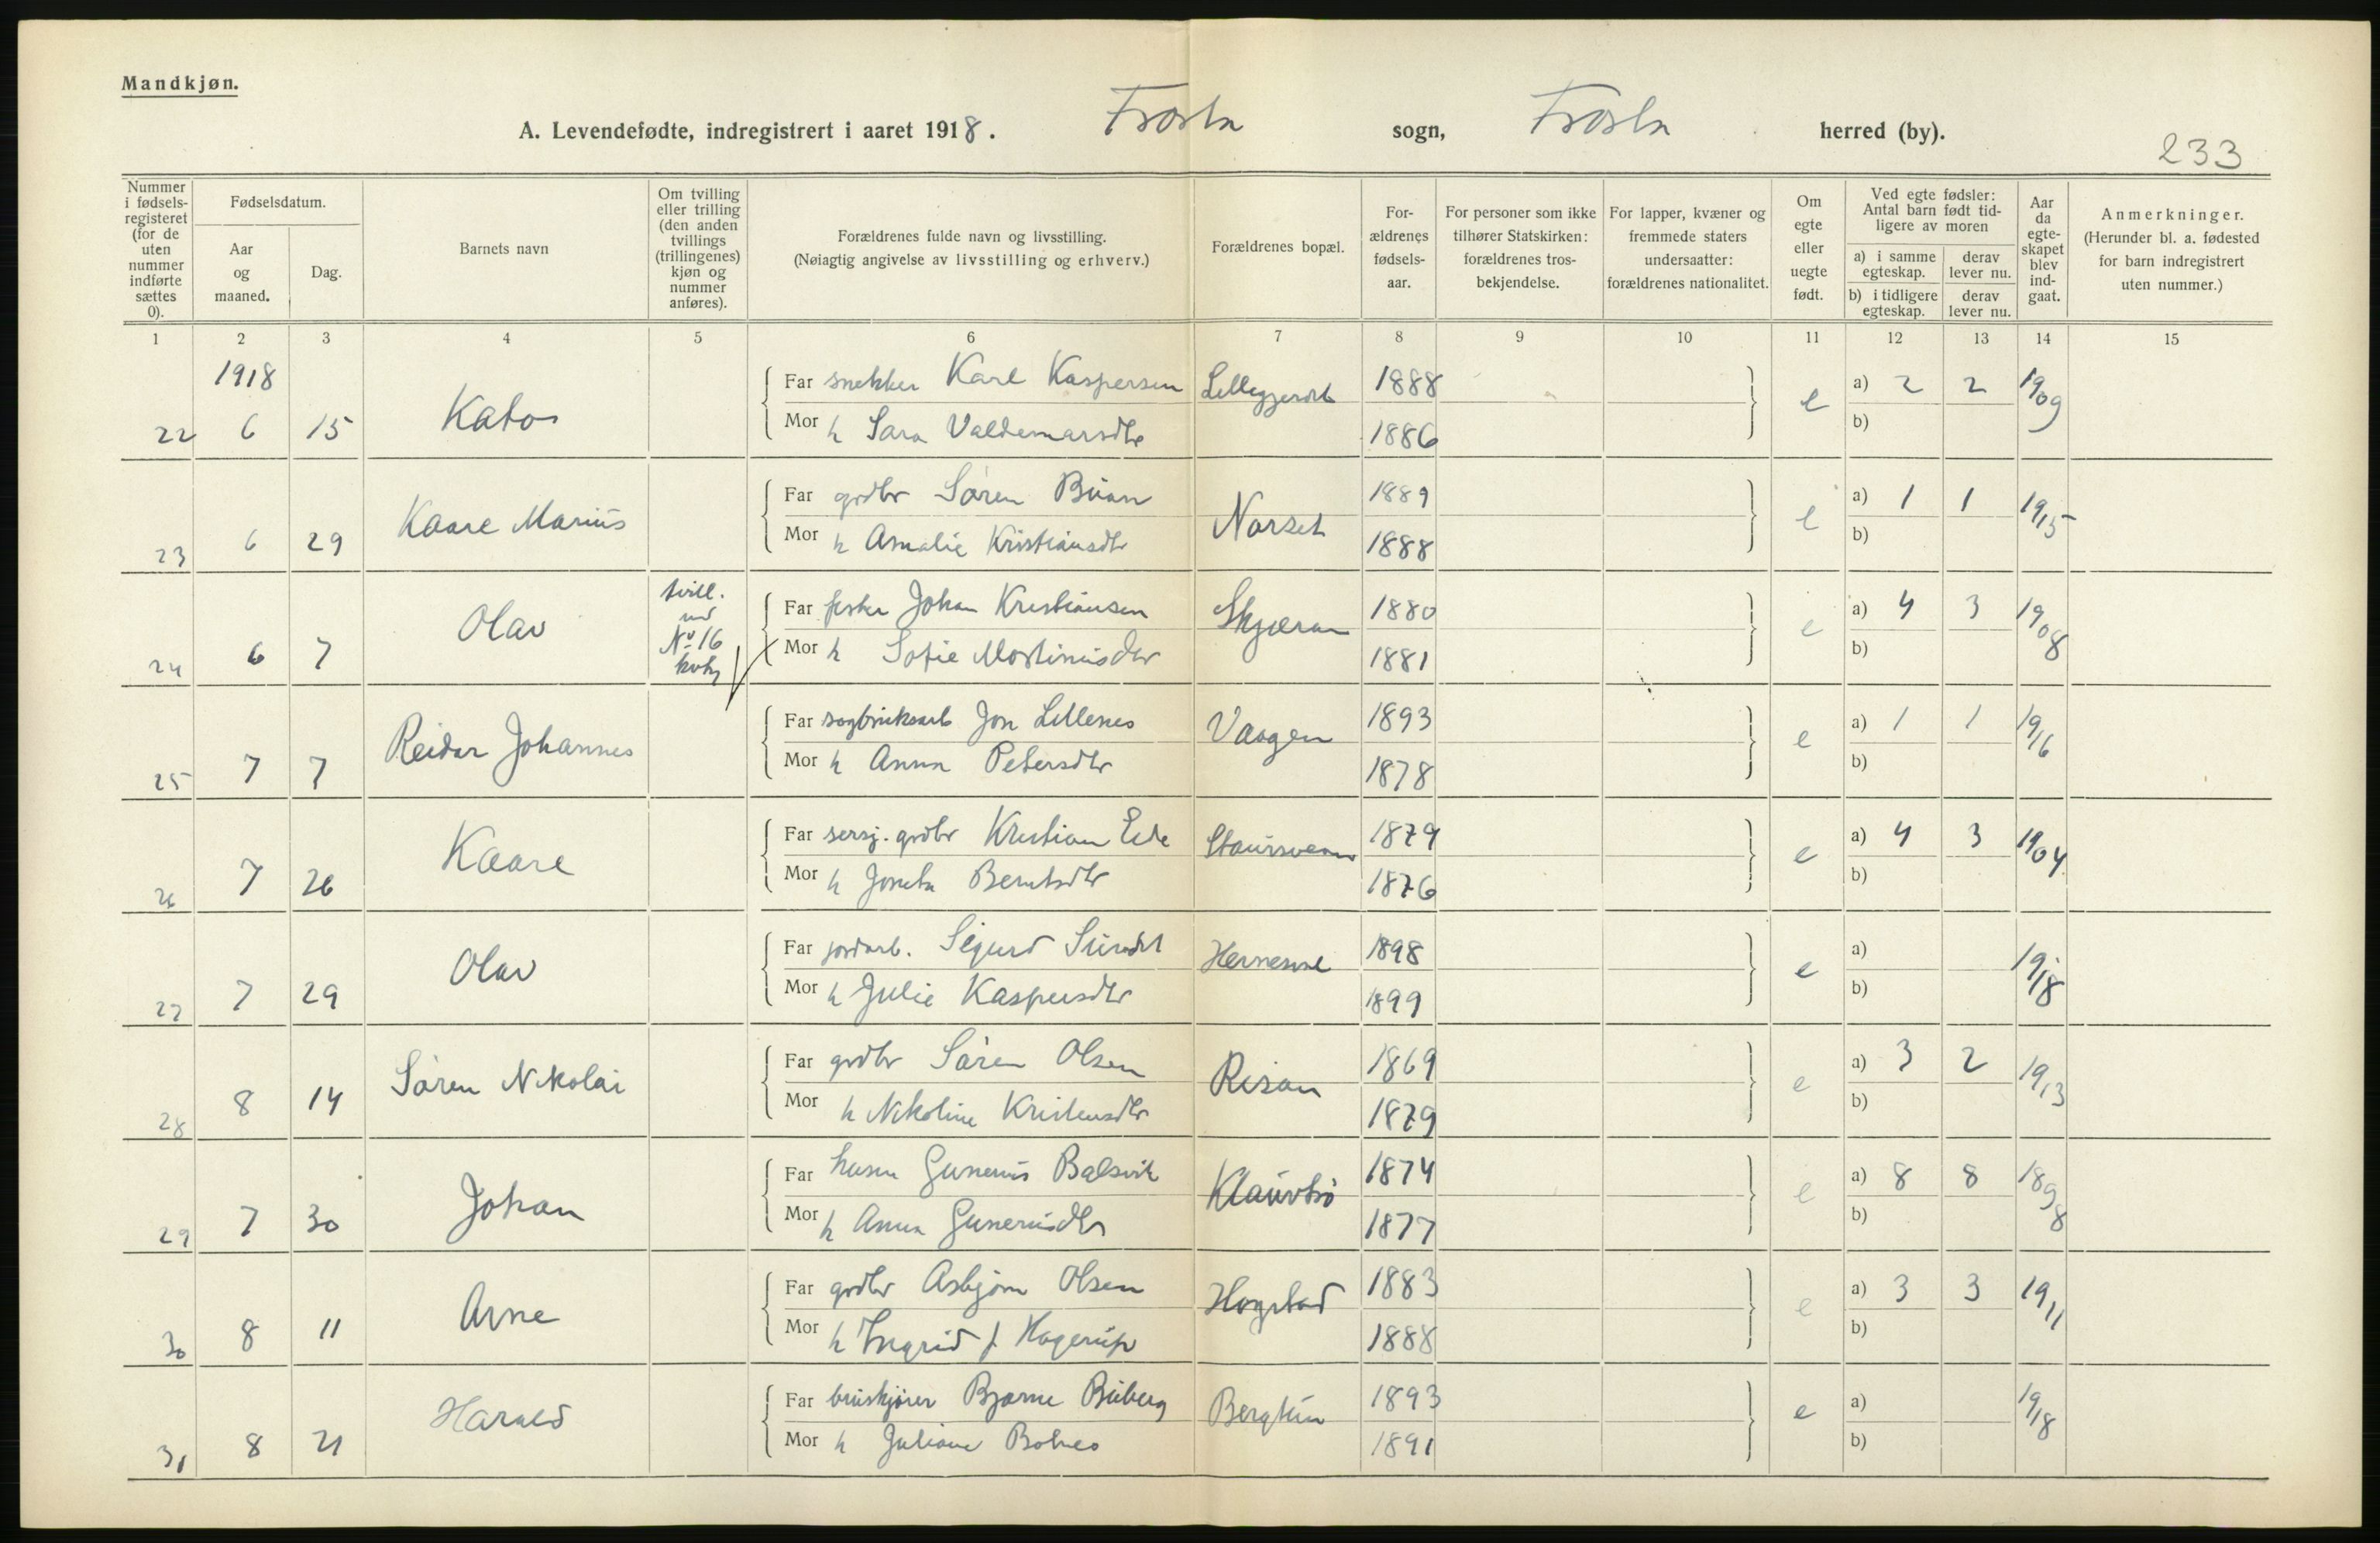 Mandkjøn.
A. Levendefødte, indregistrert i aaret 1918. Frosta sogn, Frosta herred (by).
233
Nummer i fødselsregisteret (for de uten nummer indførte sættes 0).
Fødselsdatum.
Aar og maaned.
Dag.
Barnets navn
Om tvilling eller trilling (den anden tvillings (trillingenes) kjøn og nummer anføres).
Forældrenes fulde navn og livsstilling.
(Nøiagtig angivelse av livsstilling og erhverv.)
Forældrenes bopæl.
Forældrenes fødselsaar.
For personer som ikke tilhører Statskirken: forældrenes trosbekjendelse.
For lapper, kvæner og fremmede staters undersaatter: forældrenes nationalitet.
Om egte eller uegte født.
Ved egte fødsler: Antal barn født tidligere av moren
a) i samme egteskap.
derav lever nu.
b) i tidligere egteskap.
derav lever nu.
Aar da egteskapet blev indgaat.
Anmerkninger.
(Herunder bl. a. fødested for barn indregistrert uten nummer.)
1 2 3 4 5 6 7 8 9 10 11 12 13 14 15
1918
22 6 15 Kato
Far snekker Karl Kaspersen 1888 e a) 2 2 1909
Mor h Sara Valdemarsdtr 1886 b)
23 6 29 Kaare Marius
Far grdbr Sören Buan Norset 1889 e a) 1 1 1915
Mor h Amalie Kristiansdtr 1888 b)
24 6 7 Olav tvill. med No 16 kvkj
Far fester Johan Kristiansen Skjæran 1880 e a) 4 3 1908
Mor h Sofie Martinusdtr 1881 b)
25 7 7 Reidar Johannes
Far sagbruksarb Jon Lillenes Vaagen 1893 e a) 1 1 1916
Mor h Anna Petersdtr 1878 b)
26 7 26 Kaare
Far sersj. grdbr Kristian Eide 1879 e a) 4 3 1904
Mor h Berntsdtr 1876 b)
27 7 29 Olav
Far jordarb. Sigurd 1898 e a) 1918
Mor h Julie Kaspersdtr 1899 b)
28 8 14 Sören Nikolai
Far grdbr Sören Olsen Risan 1869 e a) 3 2 1913
Mor h Nikoline Kristensdtr 1879 b)
29 7 30 Johan
Far husm Gunerius Balsvik 1874 e a) 8 8 1898
Mor h Anna Guneriusdtr 1877 b)
30 8 11 Arne
Far grdbr Asbjörn Olsen Hogstad 1883 e a) 3 3 1911
Mor h Ingrid f Hagerup 1888 b)
31 8 21 Harald
Far Bjarne Buberg Bergtun 1893 e a) 1918
Mor h Juliane 1891 b)